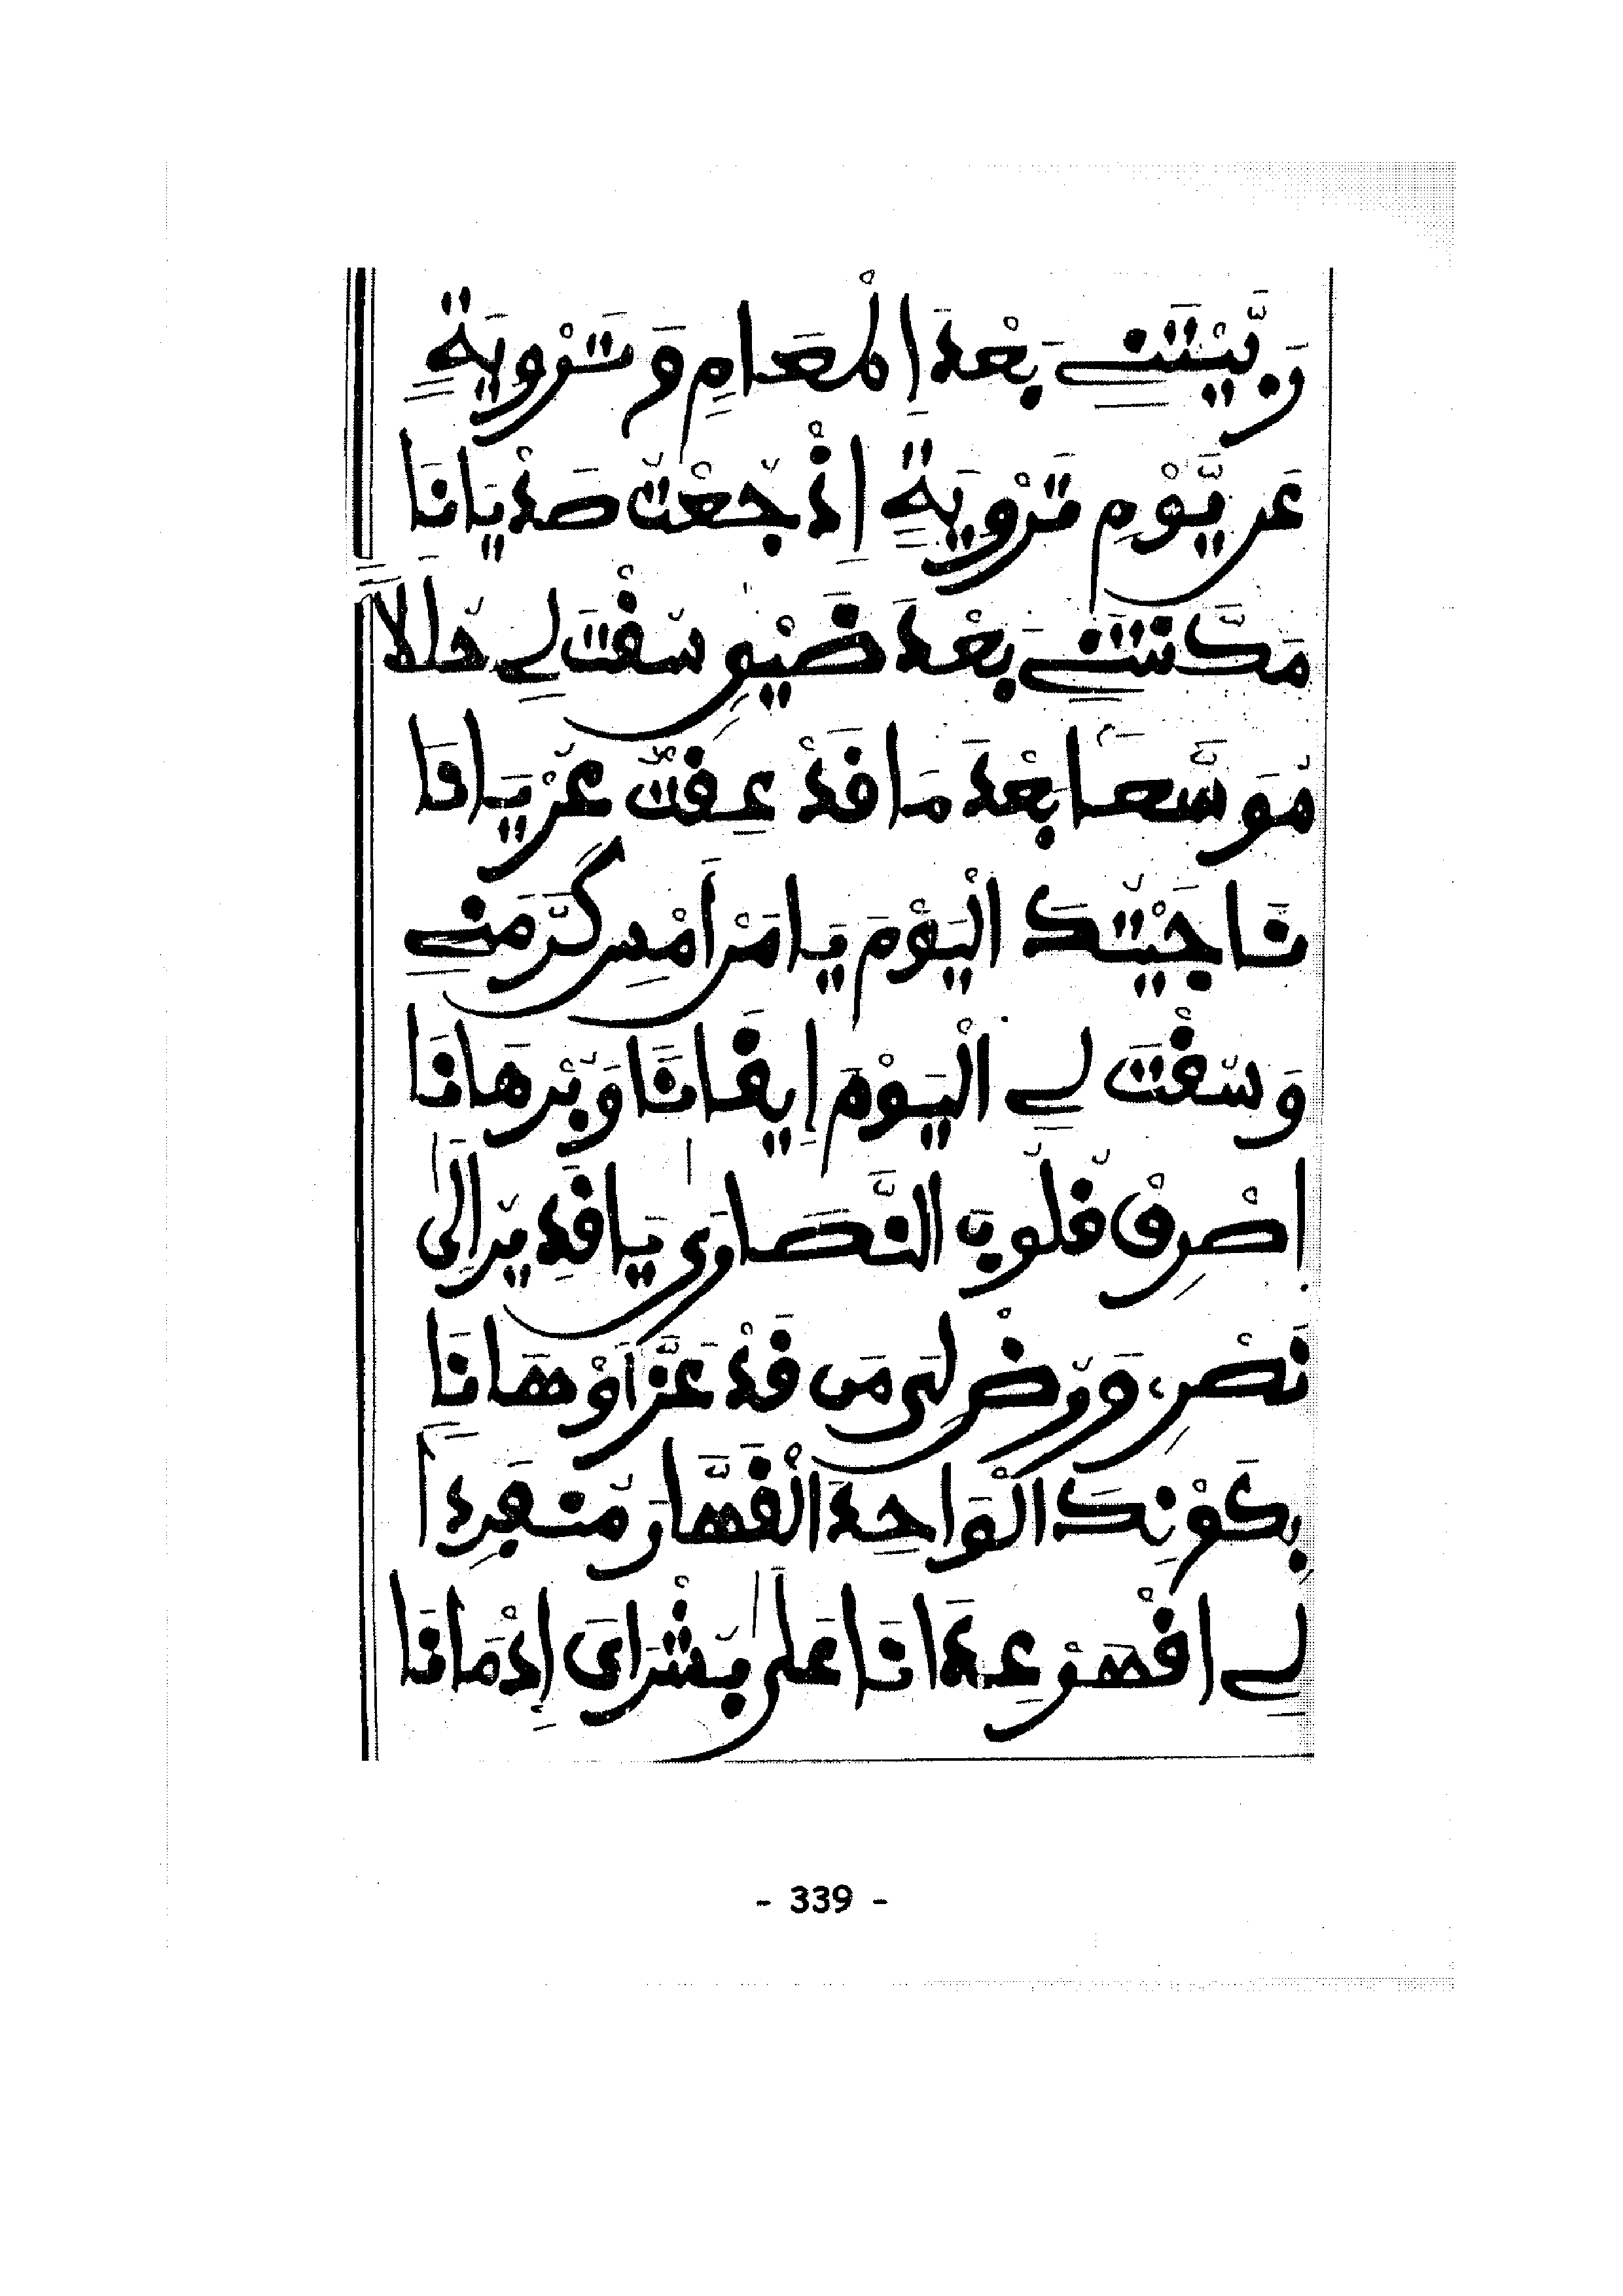 رَبَّيْتَنِے بَعْدَ اِلْمَعَامِ وَتَرْوِيَةٍ
عَن يَّوْمِ تَرْوِيَةٍ إِذْ جُعْتُ صَدْيَانَا
مَكَّنتَنِے بَعْدَ ضَيْفٍ سُقْتَ لِے حَلَالًا
مُوَسَّعاً بَعْدَ مَا قَدْ عِفْتُ عُرْيَانَا
نَاجَيْتُكَ الْيَوْمَ يَا مَنْ أَمْسِ كَرَّمَنِے
وَسُقْتَ لِے الْيَوْمَ إِيقَاناً وَبُرْهَانَا
اصْرِفْ قُلُوبَ النَّصَارَىٰ يَا قَدِيرُ إِلَىٰ
نَصْرٍ وَرُضْ لِيَ مَن قَدْ عَزَّ أَوْ هَانَا
بِكَوْنِكَ الْوَاحِدَ الْقَهَّارَ مُنفَرِداً
لِے اقْهَرْ عِدَانَا عَلَىٰ بُشْرَايَ إِدْمَانَا
- 339 -